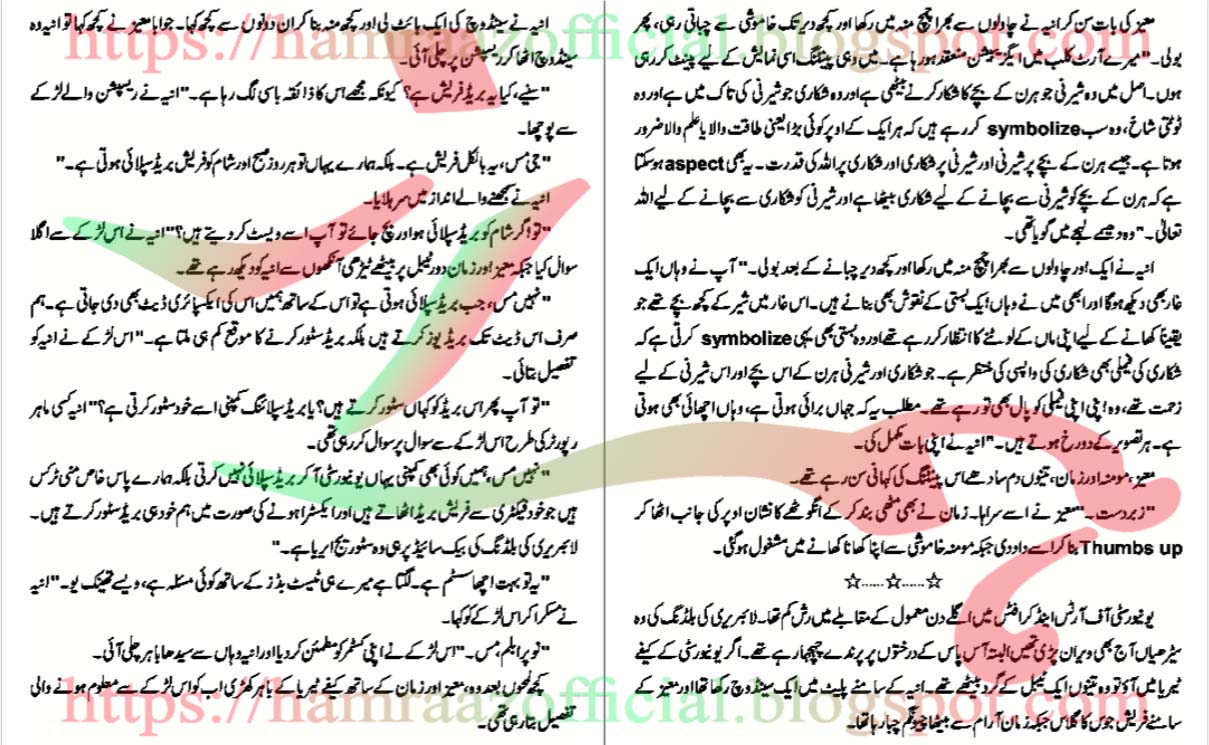 معیز کی بات سن کر انیہ نے چاولوں سے بھرا چمچ منہ میں رکھا اور کچھ دیر تک خاموشی سے چباتی رہی، پھر
بولی۔ "میرے آرٹ کلب میں ایگزیبیشن منعقد ہو رہا ہے۔ میں وہی پینٹنگ اسی نمائش کے لیے پینٹ کر رہی
ہوں۔ اصل میں وہ شیرنی جو ہرن کے بچے کا شکار کرنے بیٹھی ہے اور وہ شکاری جو شیرنی کی تاک میں ہے اور وہ
ٹوٹتی شاخ، وہ سب symbolize کر رہے ہیں کہ ہر ایک کے اوپر کوئی بڑا یعنی طاقت والا یا علم والا ضرور
ہوتا ہے۔ جیسے ہرن کے بچے پر شیرنی اور شیرنی پر شکاری اور شکاری پر اللہ کی قدرت۔ یہ بھی aspect ہو سکتا
ہے کہ ہرن کے بچے کو شیرنی سے بچانے کے لیے شکاری بیٹھا ہے اور شیرنی کو شکاری سے بچانے کے لیے اللہ
تعالیٰ۔" وہ دھیمے لہجے میں گویا تھی۔
انیہ نے ایک اور چاولوں سے بھرا چمچ منہ میں رکھا اور کچھ دیر چبانے کے بعد بولی۔ "آپ نے وہاں ایک
غار بھی دیکھ ہوگا اور ابھی میں نے وہاں ایک بستی کے نقوش بھی بنانے ہیں۔ اس غار میں شیر کے کچھ بچے تھے جو
یقیناً کھانے کے لیے اپنی ماں کے لوٹنے کا انتظار کر رہے تھے اور وہ بستی بھی یہی symbolize کرتی ہے کہ
شکاری کی فیملی بھی شکاری کی واپسی کی منتظر ہے۔ جو شکاری اور شیرنی ہرن کے اس بچے اور اس شیرنی کے لیے
زحمت تھے، وہ اپنی اپنی فیملی کو پال بھی تو رہے تھے۔ مطلب یہ کہ جہاں برائی ہوتی ہے، وہاں اچھائی بھی ہوتی
ہے۔ ہر تصویر کے دو رخ ہوتے ہیں۔" انیہ نے اپنی بات مکمل کی۔
معیز، مومنہ اور زمان، تینوں دم سادھے اس پینٹنگ کی کہانی سن رہے تھے۔
"زبردست۔" معیز نے اسے سراہا۔ زمان نے بھی مٹھی بند کر کے انگوٹھے کا نشان اوپر کی جانب اٹھا کر
Thumbs up بنا کر اسے داد دی جبکہ مومنہ خاموشی سے اپنا کھانا کھانے میں مشغول ہوگئی۔
☆.....☆.....☆
یونیورسٹی آف آرٹس اینڈ کرافٹس میں اگلے دن معمول کے مقابلے میں رش کم تھا۔ لائبریری کی بلڈنگ کی وہ
سیڑھیاں آج بھی ویران پڑی تھیں البتہ آس پاس کے درختوں پر پرندے چہچہا رہے تھے۔ اگر یونیورسٹی کے کیفے
ٹیریا میں آؤ تو وہ تینوں ایک ٹیبل کے گرد بیٹھے تھے۔ انیہ کے سامنے پلیٹ میں ایک سینڈوچ رکھا تھا اور معیز کے
سامنے فریش جوس کا گلاس جبکہ زمان آرام سے بیٹھا چیونگم چبا رہا تھا۔
انیہ نے سینڈوچ کی ایک بائٹ لی اور کچھ منہ بنا کر ان دونوں سے کچھ کہا۔ جواباً معیز نے کچھ کہا تو انیہ وہ
سینڈوچ اٹھا کر ریسپشن پر چلی آئی۔
"سنیے، کیا یہ بریڈ فریش ہے؟ کیونکہ مجھے اس کا ذائقہ باسی لگ رہا ہے۔" انیہ نے ریسپشن والے لڑکے
سے پوچھا۔
"جی مس، یہ بالکل فریش ہے۔ بلکہ ہمارے یہاں تو ہر روز صبح اور شام کو فریش بریڈ سپلائی ہوتی ہے۔"
انیہ نے سمجھنے والے انداز میں سر ہلایا۔
"تو اگر شام کو بریڈ سپلائی ہو اور بچ جائے تو آپ اسے ویسٹ کر دیتے ہیں؟" انیہ نے اس لڑکے سے اگلا
سوال کیا جبکہ معیز اور زمان دور ٹیبل پر بیٹھے ٹیڑھی آنکھوں سے انیہ کو دیکھ رہے تھے۔
"نہیں مس، جب بریڈ سپلائی ہوتی ہے تو اس کے ساتھ ہمیں اس کی ایکسپائری ڈیٹ بھی دی جاتی ہے۔ ہم
صرف اس ڈیٹ تک بریڈ یوز کرتے ہیں بلکہ بریڈ سٹور کرنے کا موقع کم ہی ملتا ہے۔" اس لڑکے نے انیہ کو
تفصیل بتائی۔
"تو آپ پھر اس بریڈ کو کہاں سٹور کرتے ہیں؟ یا بریڈ سپلائنگ کمپنی اسے خود سٹور کرتی ہے؟" انیہ کسی ماہر
رپورٹر کی طرح اس لڑکے سے سوال پر سوال کر رہی تھی۔
"نہیں مس، ہمیں کوئی بھی کمپنی یہاں یونیورسٹی آ کر بریڈ سپلائی نہیں کرتی بلکہ ہمارے پاس خاص منی ٹرکس
ہیں جو خود فیکٹری سے فریش بریڈ اٹھاتے ہیں اور ایکسٹرا ہونے کی صورت میں ہم خود ہی بریڈ سٹور کرتے ہیں۔
لائبریری کی بلڈنگ کی بیک سائیڈ پر ہی وہ سٹوریج ایریا ہے۔"
"یہ تو بہت اچھا سسٹم ہے۔ لگتا ہے میرے ہی ٹیسٹ بڈز کے ساتھ کوئی مسئلہ ہے، ویسے تھینک یو۔" انیہ
نے مسکرا کر اس لڑکے کو کہا۔
"نو پرابلم، مس۔" اس لڑکے نے اپنی کسٹمر کو مطمئن کر دیا اور انیہ وہاں سے سیدھا باہر چلی آئی۔
کچھ لمحوں بعد وہ، معیز اور زمان کے ساتھ کیفے ٹیریا کے باہر کھڑی اب کو اس لڑکے سے معلوم ہونے والی
تفصیل بتا رہی تھی۔
https://hamraazofficial.blogspot.com
https://hamraazofficial.blogspot.com